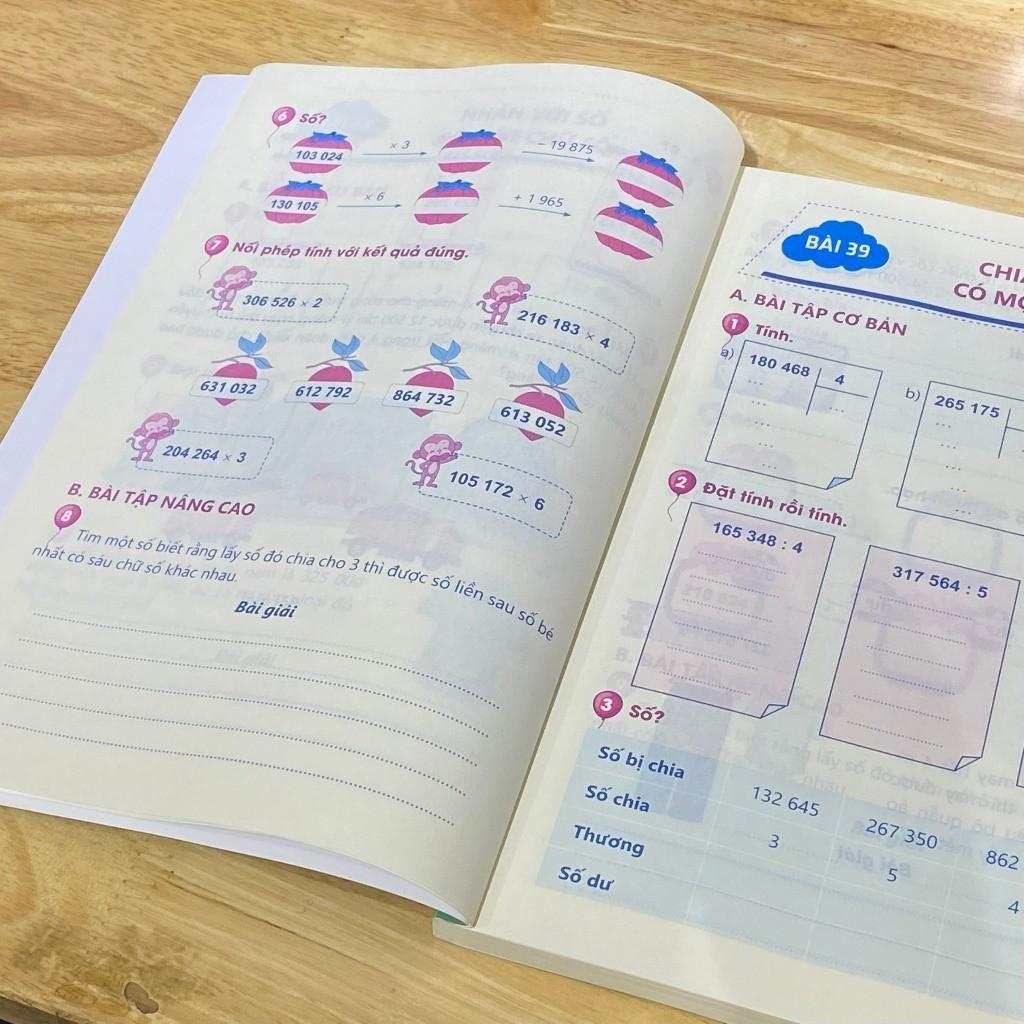 6 Số?
103 024 × 3 − 19 875
130 105 × 6 + 1 965
7 Nối phép tính với kết quả đúng.
306 526 × 2
216 183 × 4
631 032 612 792 864 732 613 052
204 264 × 3
105 172 × 6
B. BÀI TẬP NÂNG CAO
8 Tìm một số biết rằng lấy số đó chia cho 3 thì được số liền sau số bé
nhất có sáu chữ số khác nhau.
Bài giải
BÀI 39
CÓ
A. BÀI TẬP CƠ BẢN
1 Tính.
a) 180 468 4
b) 265 175
2 Đặt tính rồi tính.
165 348 : 4
317 564 : 5
3 Số?
Số bị chia 132 645 267 350 862
Số chia 3 5 4
Thương
Số dư